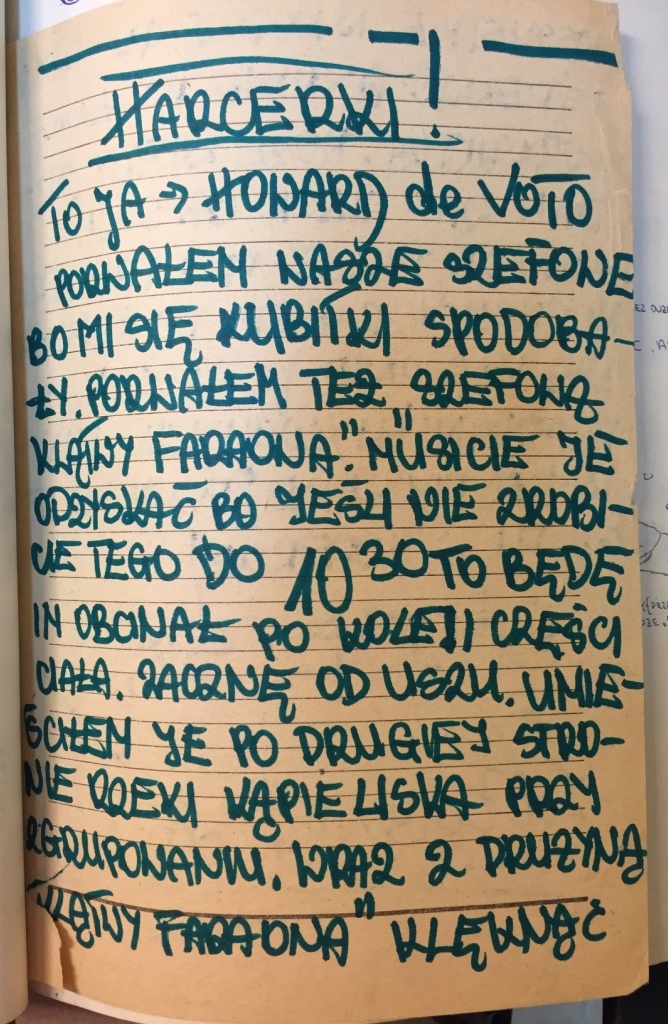 HARCERKI!
TO JA → HOWARD de VOTO
PORWAŁEM WASZE SZEFOWE
BO MI SIĘ KUBITKI SPODOBA-
ŁY. PORWAŁEM TEŻ SZEFOWĄ
"KLĄTWY FARAONA". MUSICIE JE
ODZYSKAĆ BO JEŚLI NIE ZROBI-
CIE TEGO DO 10 30 TO BĘDĘ
IM OBCINAŁ PO KOLEJI CZĘŚCI
CIAŁA. ZACZNĘ OD USZU. UMIE-
ŚCIŁEM JE PO DRUGIEJ STRO-
NIE RZEKI KĄPIELISKA PRZY
ZGRUPOWANIU. WRAZ Z DRUŻYNĄ
"KLĄTWY FARAONA" KLĘKNĄĆ